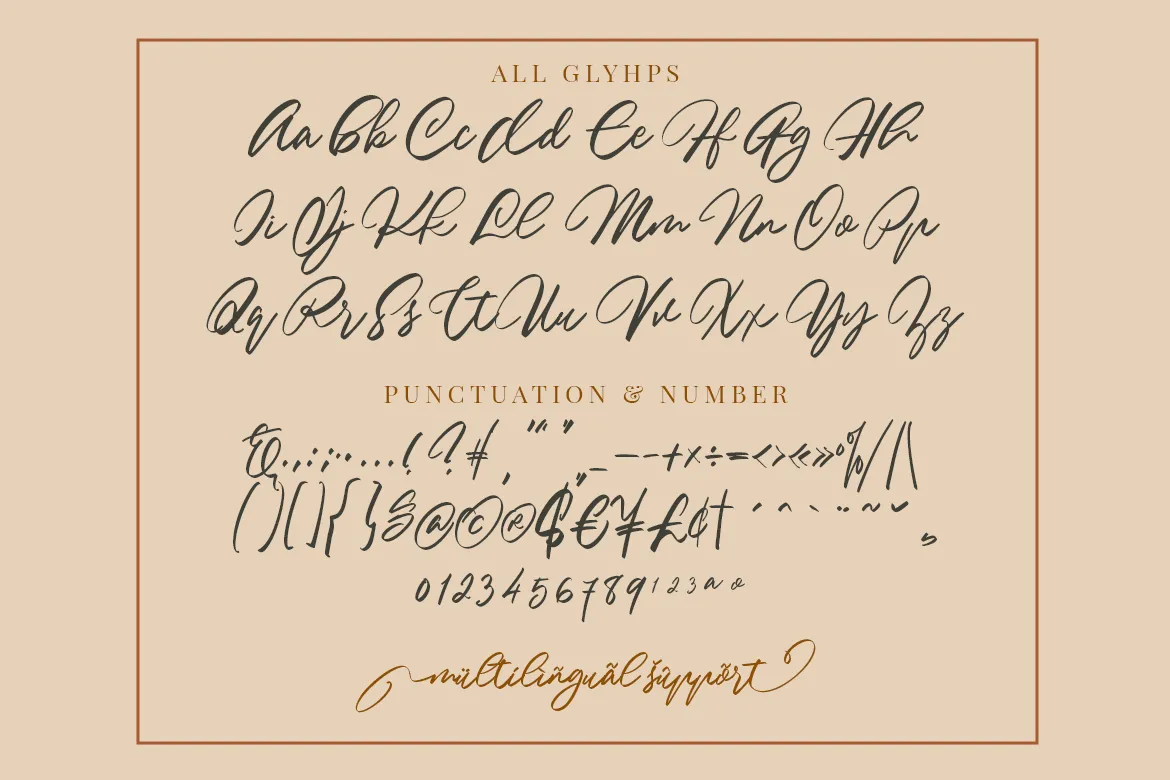 ALL GLYHPS
Aa Bb Cc Dd Ee Ff Gg Hh
Ii Jj Kk Ll Mm Nn Oo Pp
Qq Rr Ss Tt Uu Vv Xx Yy Zz
PUNCTUATION & NUMBER
&.,:;…·...!?# ‚ "' " „_—–-+×÷=<>«»°%/|\
()[]{}§@©®$€¥£¢† ´ ^ ` ¨ ~ ˘ ¸
0123456789¹²³ªº
mültílìñguãl šûppõrt